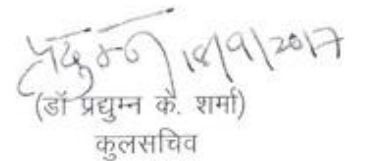 18/9/2017
(डॉ प्रद्युम्न के. शर्मा)
कुलसचिव